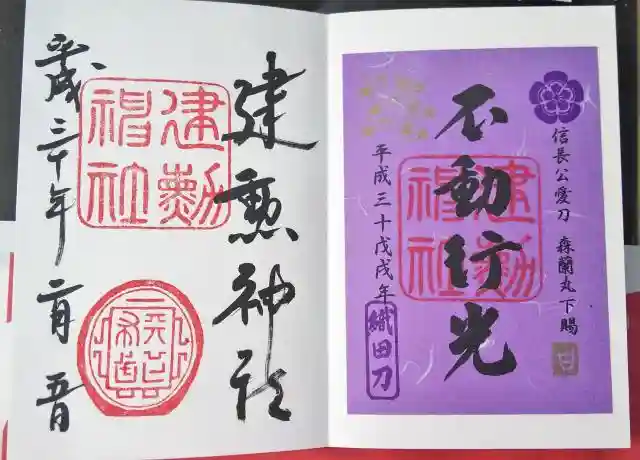 信長公愛刀 森蘭丸下賜
不動行光
建勲神社
平成三十戊戌年
織田刀
建勲神社
建勲神社
平成三十年二月五日